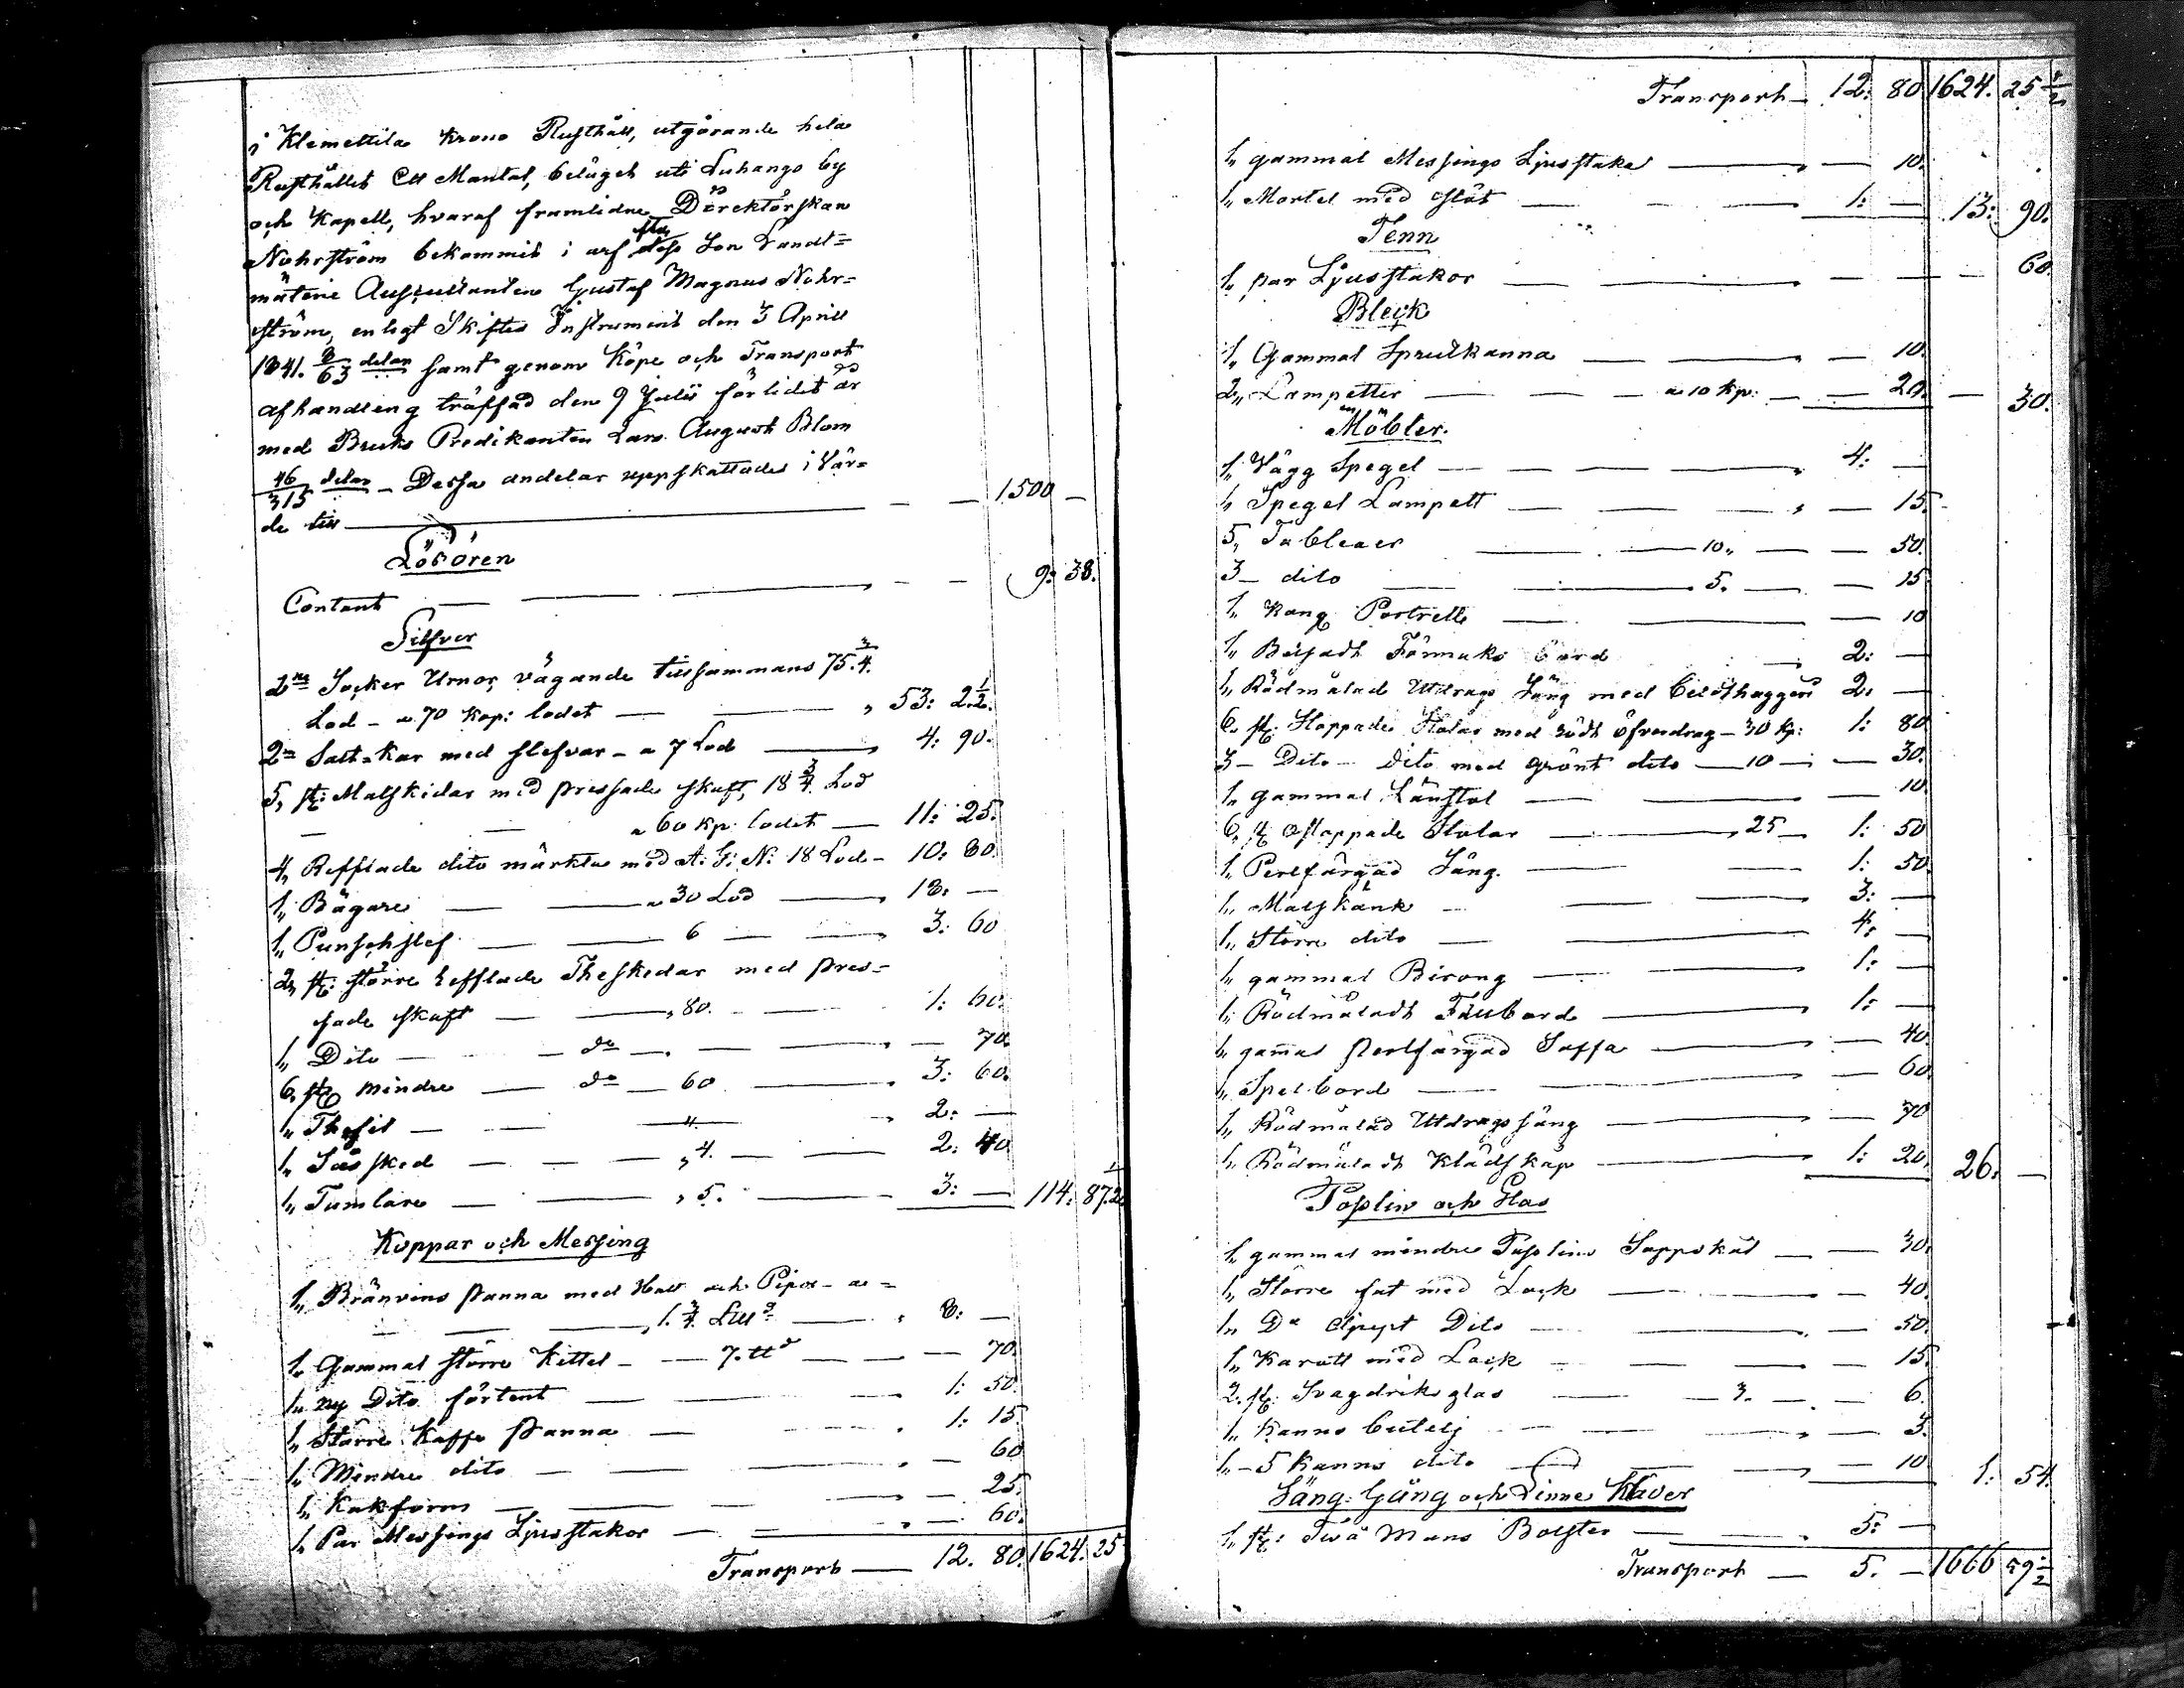 i Klemettila Krono Rusthåll, utgörande hela
Rusthållet Ett Mantal, beläget uti Luhango by
och Kapell, hvaraf framlidne Direktörskan
Nohrström bekommit i arf efter dess Son Landt=
mäterie Auscultanten Gustaf Magnus Nohr=
ström, enligt Skiftes Instrument den 3 April
1841. 8/63 delar samt genom Köpe och Transport
afhandling träffad den 9 Julii förlidet år
med Bruks Predikanten Lars August Blom
46/315 delar – Dessa andelar uppskattades i Vär=
de till — — — 1500 —
Lösören
Contant — — — 9: 38.
Silfver
2ne Socker Urnor, vägande tillsammans 75. 3/4.
Lod – a 70 kop: lodet — — 53: 2 1/2.
2ne Salt=kar med slefvar – a 7 Lod — 4: 90.
5, st: Matskidar med pressade skaft, 18 3/4. Lod
— — a 60 kp. lodet — 11: 25.
4, Refflade dito märkta med A. G: N: 18 Lod – 10: 80.
1,, Bägare — — a 30 Lod — 18. —
1,, Punschslef — — 6 — — 3: 60
2, st: större refflade Theskedar med pres=
sade skaft — — 80. — — 1: 60.
1,, Dito — — do — — — 70.
6, st: mindre — do — 60 — 3: 60.
1,, Thesil — — 4. — 2: —
1,, Sås sked — — — 4. — — 2: 40.
1,, Tumlare — — 5. — 3: — 114: 87 1/2.
Koppar och Messing
1,, Bränvins panna med Hatt och Pipor – a =
— — — 1. 3/4. LU — 8: —
1,, Gammal större Kittel — — 7. — — — 70.
1,, ny Dito förtent — — — 1: 50.
1,, Större Kaffe panna — — 1: 15
1,, Mindre dito — — — — 60
1,, Kakform — — — — 25.
1,, Par Messings Ljusstakar — — — 60.
Transport — 12. 80. 1624. 25
Transport – 12: 80 1624. 25 1/2
1,, gammal Messings Ljusstake — — 10.
1,, Mortel med stöt — — — 1: — 13: 90.
Tenn
1,, par Ljusstakor — — — — — 60.
Bleck
1,, Gammal Sprutkanna — — — — 10.
2,, Lampetter — — a 10 kp: — — 20. — 30.
Möbler.
1,, Vägg Spegel — — — — 4: —
1,, Spegel Lampett — — — — 15.
5, Tableaer — — 10,, — — 50.
3 – dito — — 5. — — 15
1,, Kong Portrett — — — 10
1,, Betsadt Förmaks bord — 2: —
1,, Rödmålad Utdrags Säng med 2. —
6. st: Stoppade Stolar med rödt öfverdrag – 30 kp: 1: 80
3 – Dito – dito med grönt dito — 10 — — 30.
1,, gammal Länstol — — — 10.
6. st: ostoppade Stolar — 25 — 1: 50
1,, Perlfärgad Säng. — — 1: 50.
1,, Matskänk — — — 3: —
1,, Större dito — — 4: —
1,, gammal Birong — — 1: —
1,, Rödmåladt Fällbord — 1: —
1,, gamal perlfärgad Saffa — — 40.
1,, Spel bord — — — 60.
1,, Rödmålad Utdragssäng — — 70
1,, Rödmåladt Klädskåp — 1: 20. 26. —
Poslin och Glas
1,, gammal mindre Poslins Soppskål — — 30.
1,, Större fat med Lock — — 40.
1,, Do Dito — — — 50.
1,, Karott med Lock — — — 15.
2. st: Svagdriks glas — 3. — — 6.
1,, Kanns butelj — — — 3.
1,, – 5 Kanns dito — — — 10 1: 54.
Säng: Gång och Linne Kläder
1,, st: Två Mans Bolster — — 5: —
Transport — 5. — 1666 59 1/2